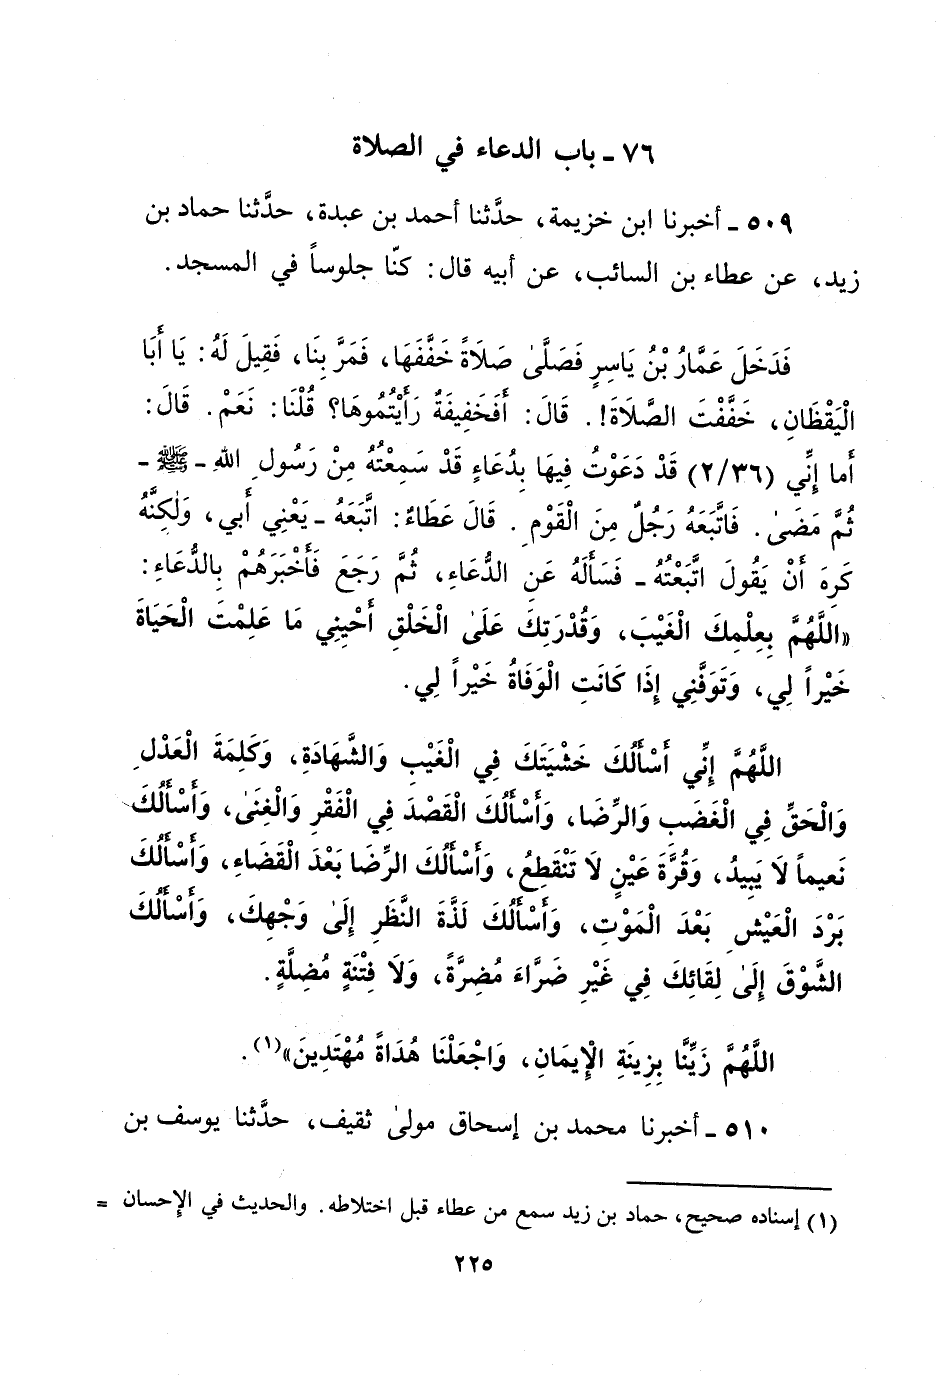 ٧٦ ـ باب الدعاء في الصلاة
٥٠٩ ـ أخبرنا ابن خزيمة، حدَّثنا أحمد بن عبدة، حدَّثنا حماد بن
زيد، عن عطاء بن السائب، عن أبيه قال: كنّا جلوساً في المسجد.
فَدَخَلَ عَمَّارُ بْنُ يَاسِرٍ فَصَلَّىٰ صَلَاةً خَفَّفَهَا، فَمَرَّ بِنَا، فَقِيلَ لَهُ: يَا أَبَا
الْيَقْظَانِ، خَفَّفْتَ الصَّلَاةَ!. قَالَ: أَفَخَفِيفَةٌ رَأَيْتُمُوهَا؟ قُلْنَا: نَعَمْ. قَالَ:
أَما إِنِّي (٢/٣٦) قَدْ دَعَوْتُ فِيهَا بِدُعَاءٍ قَدْ سَمِعْتُهُ مِنْ رَسُولِ اللهِ ـ ﷺ ـ
ثُمَّ مَضَىٰ. فَاتَّبَعَهُ رَجُلٌ مِنَ الْقَوْمِ. قَالَ عَطَاءٌ: اتَّبَعَهُ ـ يَعْنِي أَبي، وَلٰكِنَّهُ
كَرِهَ أَنْ يَقُولَ اتَّبَعْتُهُ ـ فَسَأَلَهُ عَنِ الدُّعَاءِ، ثُمَّ رَجَعَ فَأَخْبَرَهُمْ بِالدُّعَاءِ:
«اللَّهُمَّ بِعِلْمِكَ الْغَيْبَ، وَقُدْرَتِكَ عَلَىٰ الْخَلْقِ أَحْيِنِي مَا عَلِمْتَ الْحَيَاةَ
خَيْراً لِي، وَتَوَفَّنِي إِذَا كَانَتِ الْوَفَاةُ خَيْراً لِي.
اللَّهُمَّ إِنِّي أَسْأَلُكَ خَشْيَتَكَ فِي الْغَيْبِ وَالشَّهَادَةِ، وَكَلِمَةَ الْعَدْلِ
وَالْحَقِّ فِي الْغَضَبِ وَالرِّضَا، وَأَسْأَلُكَ الْقَصْدَ فِي الْفَقْرِ وَالْغِنَىٰ، وَأَسْأَلُكَ
نَعِيماً لَا يَبِيدُ، وَقُرَّةَ عَيْنٍ لَا تَنْقَطِعُ، وَأَسْأَلُكَ الرِّضَا بَعْدَ الْقَضَاءِ، وَأَسْأَلُكَ
بَرْدَ الْعَيْشِ بَعْدَ الْمَوْتِ، وَأَسْأَلُكَ لَذَّةَ النَّظَرِ إِلَىٰ وَجْهِكَ، وَأَسْأَلُكَ
الشَّوْقَ إِلَىٰ لِقَائِكَ فِي غَيْرِ ضَرَّاءَ مُضِرَّةً، وَلَا فِتْنَةٍ مُضِلَّةٍ.
اللَّهُمَّ زَيِّنَّا بِزِينَةِ الْإِيمَانِ، وَاجْعَلْنَا هُدَاةً مُهْتَدِينَ»(١).
٥١٠ ـ أخبرنا محمد بن إسحاق مولىٰ ثقيف، حدَّثنا يوسف بن
(١) إسناده صحيح، حماد بن زيد سمع من عطاء قبل اختلاطه. والحديث في الإحسان =
٢٢٥